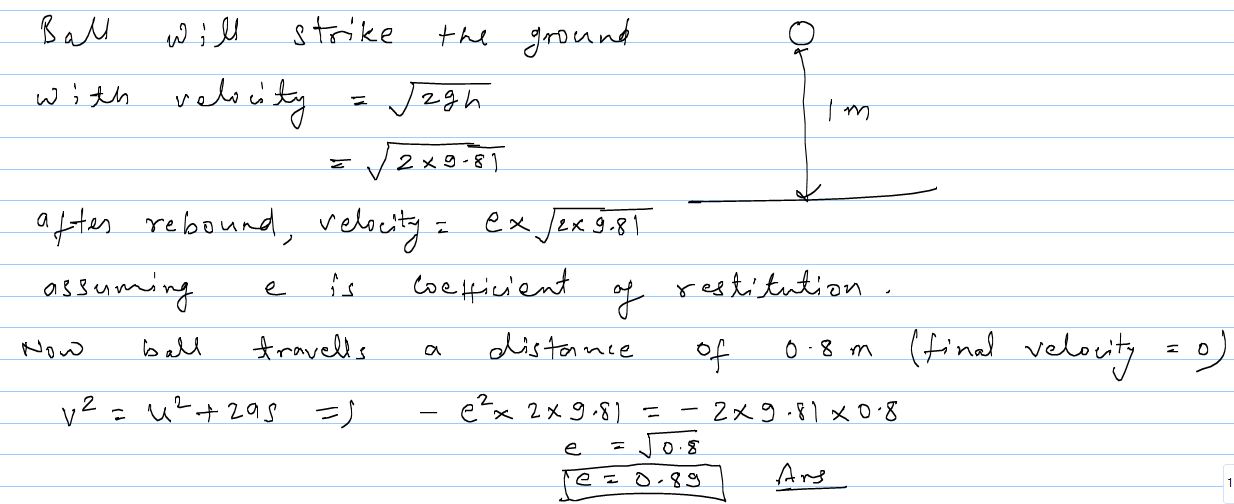 Ball will strike the ground
with velocity = √2gh
1 m
= √2×9.81
after rebound, velocity = e× √2×9.81
assuming e is coefficient of restitution.
Now ball travells a distance of 0.8 m (final velocity = 0)
v² = u² + 2as ⇒ - e² × 2×9.81 = - 2×9.81×0.8
e = √0.8
e = 0.89 Ans
1